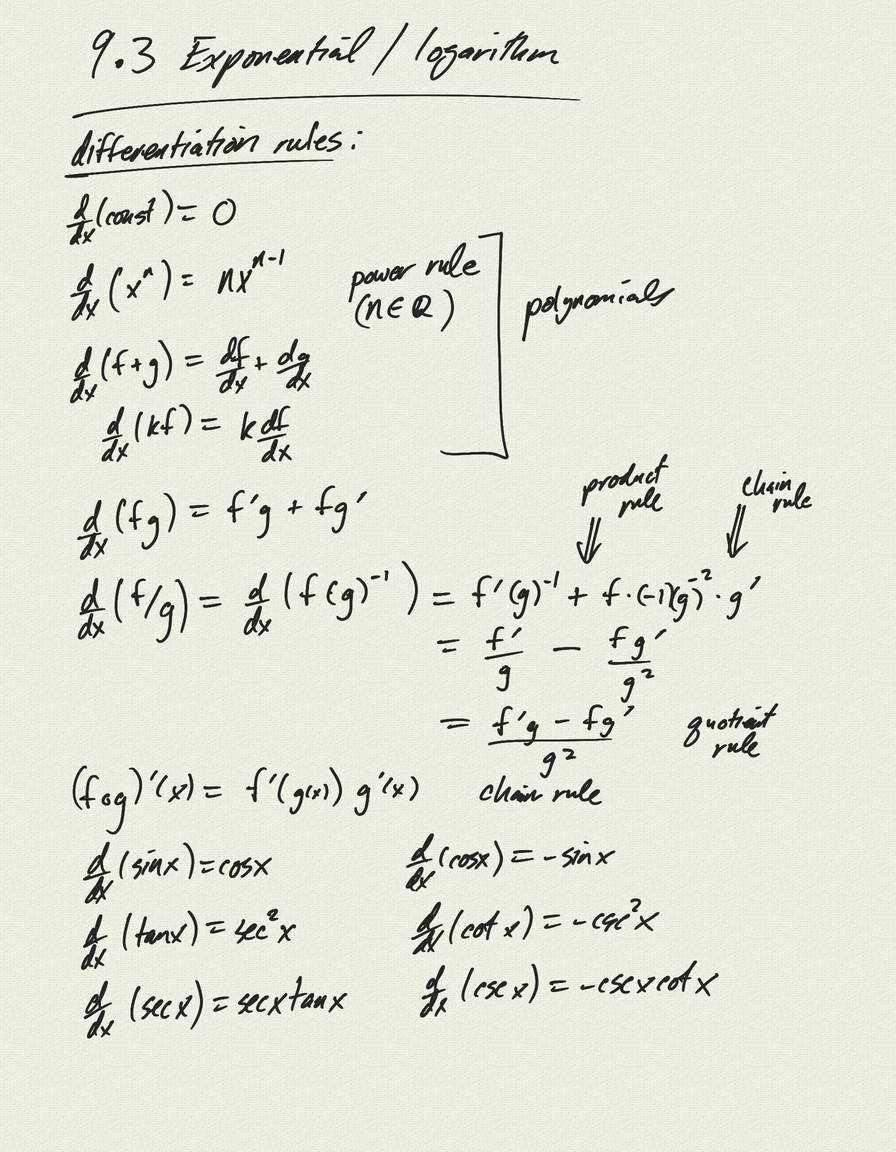 9.3 Exponential / logarithm
differentiation rules:
d/dx (const) = 0
d/dx (xⁿ) = nxⁿ⁻¹
power rule
(n ∈ Q)
polynomials
d/dx (f+g) = df/dx + dg/dx
d/dx (kf) = k df/dx
product rule
chain rule
d/dx (fg) = f'g + fg'
d/dx (f/g) = d/dx (f(g)⁻¹) = f'(g)⁻¹ + f·(-1)(g)⁻²·g'
= f'/g − fg'/g²
= (f'g − fg')/g² quotient rule
(f∘g)'(x) = f'(g(x)) g'(x) chain rule
d/dx (sinx) = cosx d/dx (cosx) = -sinx
d/dx (tanx) = sec²x d/dx (cot x) = -csc²x
d/dx (secx) = secxtanx d/dx (cscx) = -cscxcotx